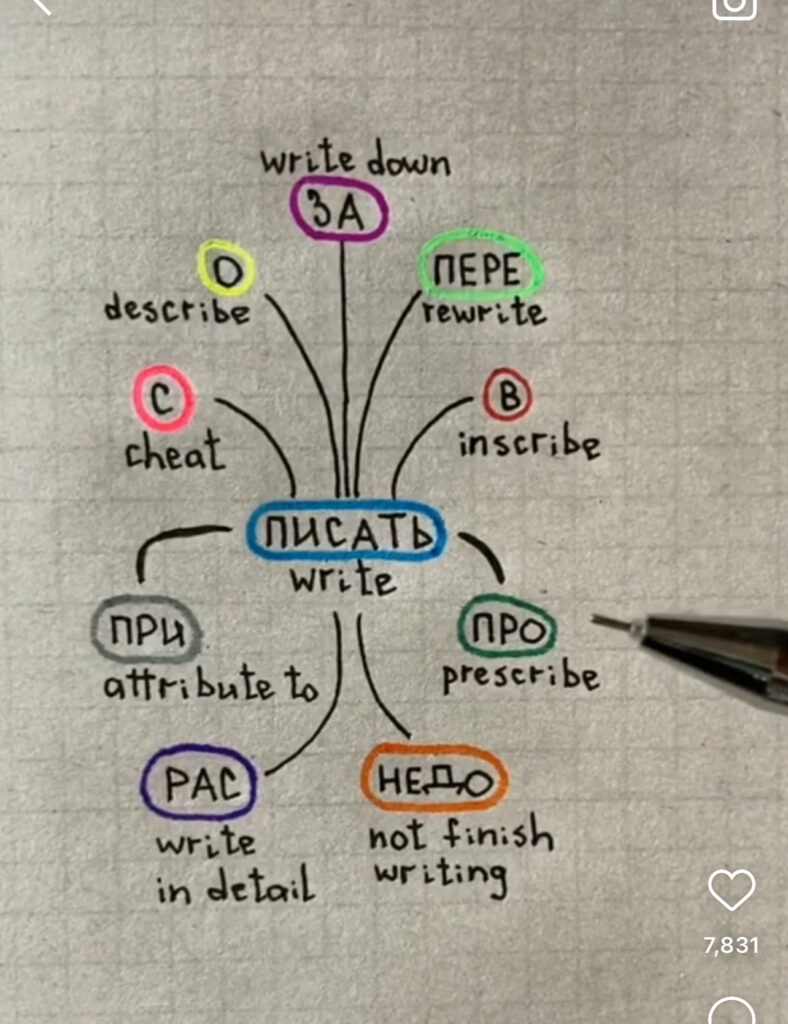 write down
ЗА
О
describe
ПЕРЕ
rewrite
С
cheat
В
inscribe
ПИСАТЬ
write
ПРИ
attribute to
ПРО
prescribe
РАС
write
in detail
НЕДО
not finish
writing
7,831